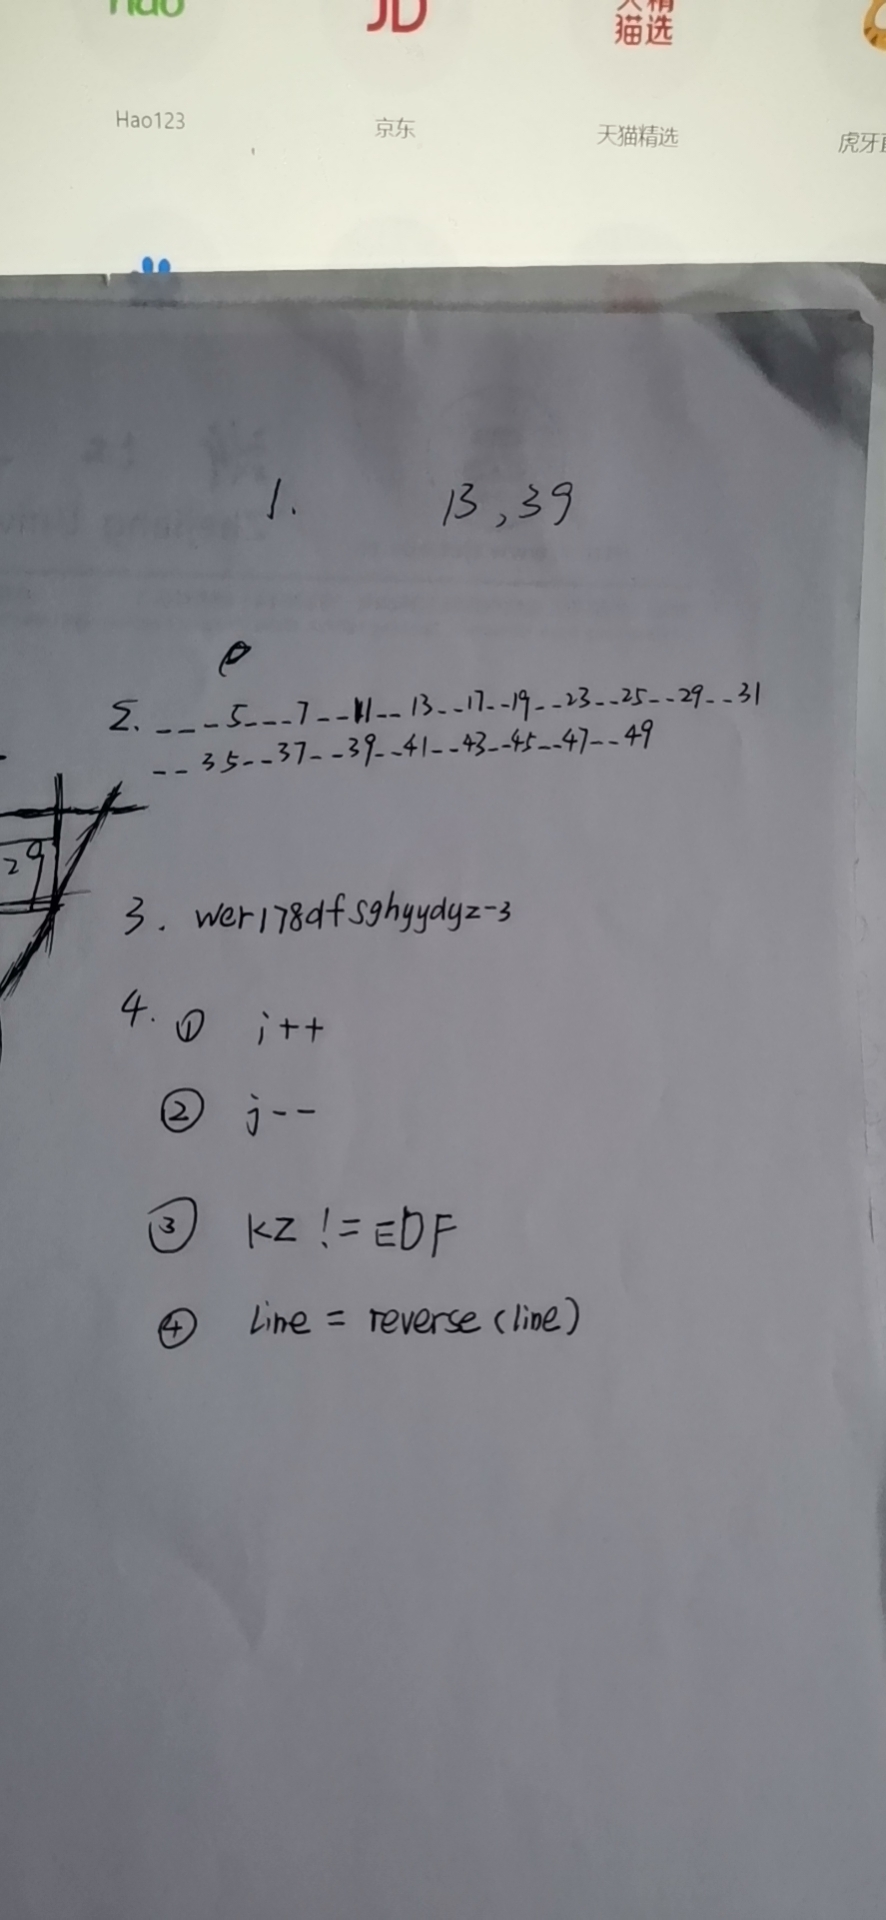 Hao123
京东
天猫精选
虎牙
1. 13,39
2. ---5---7--11--13--17--19--23--25--29--31
--35--37--39--41--43--45--47--49
29
3. wer178dfsghyydyz-3
4. ① i++
② j--
③ kz != EDF
④ Line = reverse(line)